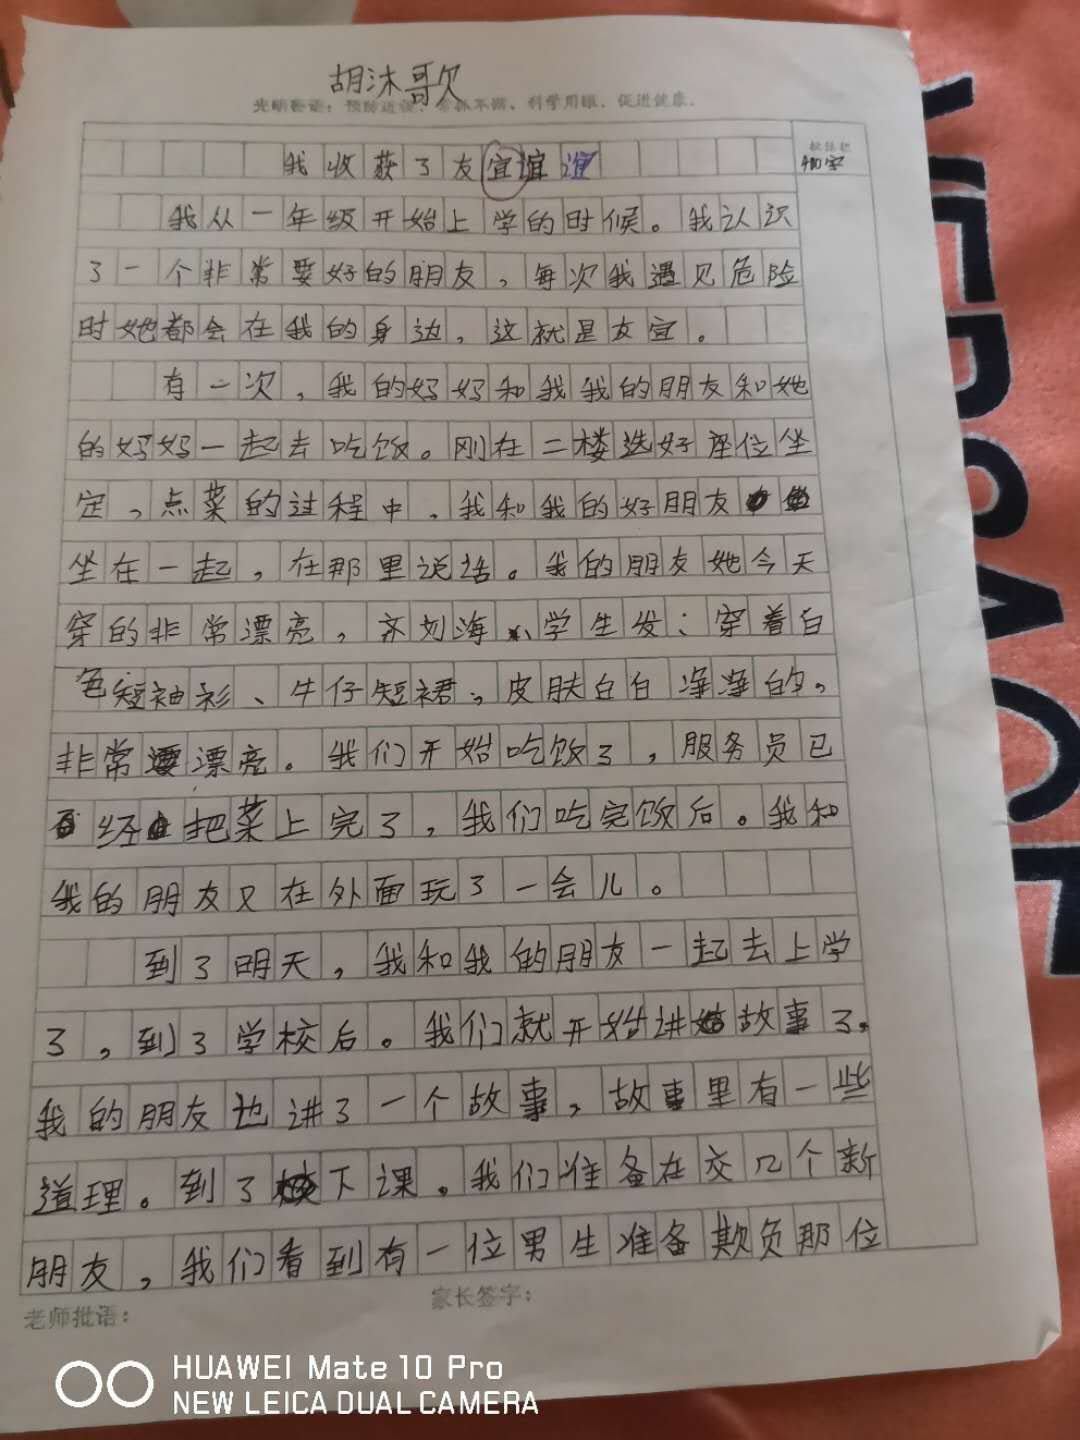 胡沐歌
光明寄语：预防近视、常抓不懈、科学用眼、促进健康。
我收获了友宜谊谊
我从一年级开始上学的时候。我认识
了一个非常要好的朋友，每次我遇见危险
时她都会在我的身边，这就是友宜。
有一次，我的妈妈和我我的朋友和她
的妈妈一起去吃饭。刚在二楼选好座位坐
定，点菜的过程中，我和我的好朋友
坐在一起，在那里说话。我的朋友她今天
穿的非常漂亮，齐刘海、学生发；穿着白
色短袖衫、牛仔短裙，皮肤白白净净的，
非常漂亮。我们开始吃饭了，服务员已
经把菜上完了，我们吃完饭后。我和
我的朋友又在外面玩了一会儿。
到了明天，我和我的朋友一起去上学
了，到了学校后。我们就开始讲故事了，
我的朋友也讲了一个故事，故事里有一些
道理。到了下课，我们准备在交几个新
朋友，我们看到有一位男生准备欺负那位
老师批语：
家长签字：
HUAWEI Mate 10 Pro
NEW LEICA DUAL CAMERA
VERSACE